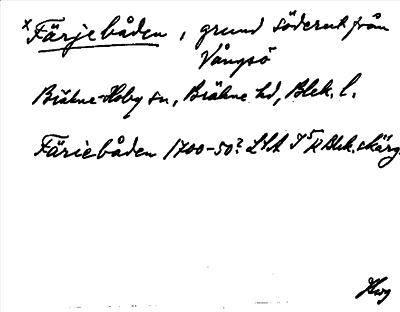 x Färjebåden, grund söderut från
Vångsö
Bräkne-Hoby sn, Bräkne hd, Blek. l.
Färiebåden 1700-50? LSA I 5 k Blek. skärg.